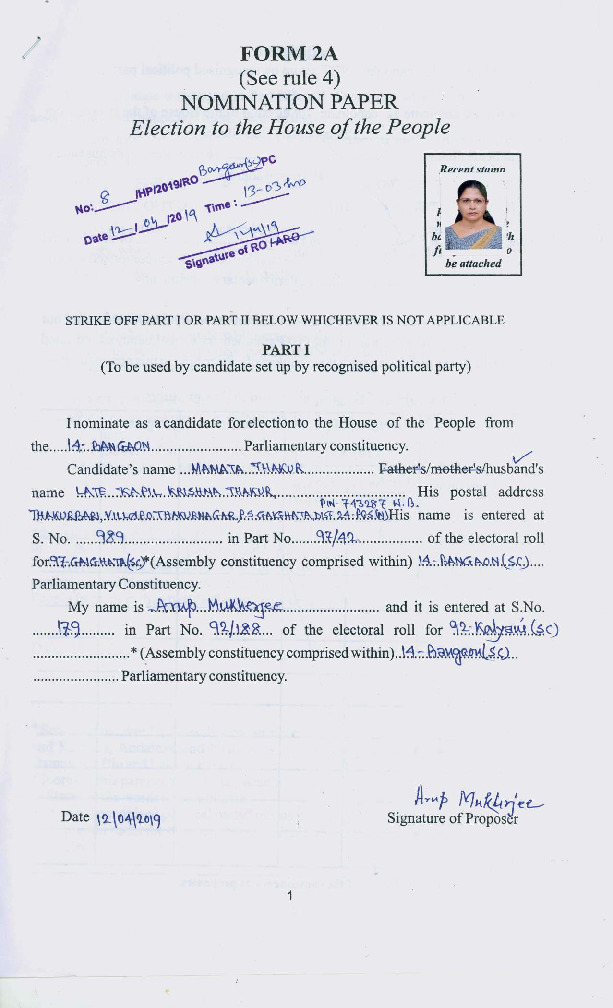 FORM 2A
(See rule 4)
NOMINATION PAPER
Election to the House of the People
No: 8 /HP/2019/RO Bangaon(SC)PC
Date 12/04/2019 Time: 13-03 hrs
Signature of RO /ARO
Recent stamp
be attached
STRIKE OFF PART I OR PART II BELOW WHICHEVER IS NOT APPLICABLE
PART I
(To be used by candidate set up by recognised political party)
I nominate as a candidate for election to the House of the People from
the.....14- BANGAON....................... Parliamentary constituency.
Candidate's name ...MAMATA THAKUR.................. Father's/mother's/husband's
name LATE KAPIL KRISHNA THAKUR,.............................. His postal address
PIN 743287 W.B.
THAKURBARI, VILL+PO.THAKURNAGAR, P.S. GAIGHATA, DIST. 24- PGS(N) His name is entered at
S. No. .....989......................... in Part No.......97/42................ of the electoral roll
for 97-GAIGHATA(SC)*(Assembly constituency comprised within) 14-BANGAON(SC)....
Parliamentary Constituency.
My name is .Arup Mukherjee......................... and it is entered at S.No.
.......179......... in Part No. 92/188... of the electoral roll for 92-Kalyani(SC)
..........................* (Assembly constituency comprised within)..14-Bangaon(SC)..
....................... Parliamentary constituency.
Arup Mukherjee
Date 12/04/2019 Signature of Proposer
1